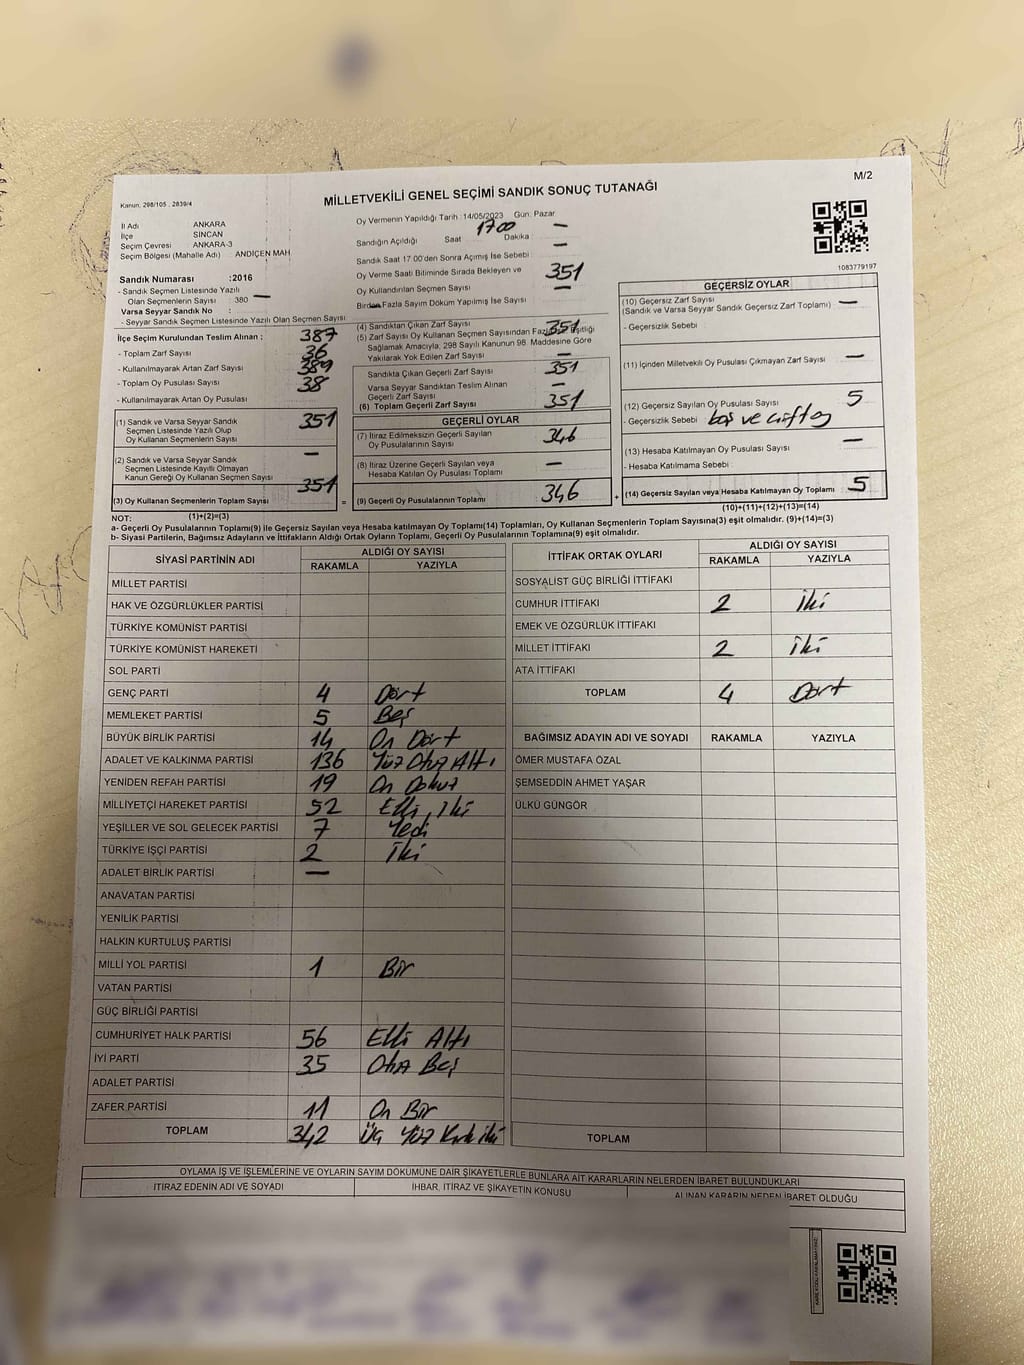 M/2
MİLLETVEKİLİ GENEL SEÇİMİ SANDIK SONUÇ TUTANAĞI
Kanun, 298/105 , 2839/4
İl Adı ANKARA
İlçe SİNCAN
Seçim Çevresi ANKARA-3
Seçim Bölgesi (Mahalle Adı) ANDİÇEN MAH
Sandık Numarası :2016
- Sandık Seçmen Listesinde Yazılı
Olan Seçmenlerin Sayısı : 380 —
Varsa Seyyar Sandık No :
- Seyyar Sandık Seçmen Listesinde Yazılı Olan Seçmen Sayısı
İlçe Seçim Kurulundan Teslim Alınan : 387
- Toplam Zarf Sayısı 36
- Kullanılmayarak Artan Zarf Sayısı 389
- Toplam Oy Pusulası Sayısı 38
- Kullanılmayarak Artan Oy Pusulası
(1) Sandık ve Varsa Seyyar Sandık
Seçmen Listesinde Yazılı Olup
Oy Kullanan Seçmenlerin Sayısı 351
(2) Sandık ve Varsa Seyyar Sandık
Seçmen Listesinde Kayıtlı Olmayan
Kanun Gereği Oy Kullanan Seçmen Sayısı —
(3) Oy Kullanan Seçmenlerin Toplam Sayısı 351
(1)+(2)=(3)
Oy Vermenin Yapıldığı Tarih :14/05/2023 Gün: Pazar
Sandığın Açıldığı Saat 17 00 Dakika : —
Sandık Saat 17.00'den Sonra Açımış İse Sebebi : —
Oy Verme Saati Bitiminde Sırada Bekleyen ve
Oy Kullandırılan Seçmen Sayısı 351
Birden Fazla Sayım Döküm Yapılmış İse Sayısı —
(4) Sandıktan Çıkan Zarf Sayısı 351
(5) Zarf Sayısı Oy Kullanan Seçmen Sayısından Fazla İse Eşitliği
Sağlamak Amacıyla, 298 Sayılı Kanunun 98. Maddesine Göre
Yakılarak Yok Edilen Zarf Sayısı —
Sandıkta Çıkan Geçerli Zarf Sayısı 351
Varsa Seyyar Sandıktan Teslim Alınan
Geçerli Zarf Sayısı —
(6) Toplam Geçerli Zarf Sayısı 351
GEÇERLİ OYLAR
(7) İtiraz Edilmeksizin Geçerli Sayılan
Oy Pusulalarının Sayısı 346
(8) İtiraz Üzerine Geçerli Sayılan veya
Hesaba Katılan Oy Pusulası Toplamı —
= (9) Geçerli Oy Pusulalarının Toplamı 346
1083779197
GEÇERSİZ OYLAR
(10) Geçersiz Zarf Sayısı
(Sandık ve Varsa Seyyar Sandık Geçersiz Zarf Toplamı) —
- Geçersizlik Sebebi :
(11) İçinden Milletvekili Oy Pusulası Çıkmayan Zarf Sayısı —
(12) Geçersiz Sayılan Oy Pusulası Sayısı 5
- Geçersizlik Sebebi : boş ve çift oy
(13) Hesaba Katılmayan Oy Pusulası Sayısı —
- Hesaba Katılmama Sebebi :
+ (14) Geçersiz Sayılan veya Hesaba Katılmayan Oy Toplamı 5
(10)+(11)+(12)+(13)=(14)
NOT:
a- Geçerli Oy Pusulalarının Toplamı(9) ile Geçersiz Sayılan veya Hesaba katılmayan Oy Toplamı(14) Toplamları, Oy Kullanan Seçmenlerin Toplam Sayısına(3) eşit olmalıdır. (9)+(14)=(3)
b- Siyasi Partilerin, Bağımsız Adayların ve İttifakların Aldığı Ortak Oyların Toplamı, Geçerli Oy Pusulalarının Toplamına(9) eşit olmalıdır.
SİYASİ PARTİNİN ADI ALDIĞI OY SAYISI
RAKAMLA YAZIYLA
MİLLET PARTİSİ
HAK VE ÖZGÜRLÜKLER PARTİSİ
TÜRKİYE KOMÜNİST PARTİSİ
TÜRKİYE KOMÜNİST HAREKETİ
SOL PARTİ
GENÇ PARTİ 4 Dört
MEMLEKET PARTİSİ 5 Beş
BÜYÜK BİRLİK PARTİSİ 14 On Dört
ADALET VE KALKINMA PARTİSİ 136 Yüz Otuz Altı
YENİDEN REFAH PARTİSİ 19 On Dokuz
MİLLİYETÇİ HAREKET PARTİSİ 52 Elli iki
YEŞİLLER VE SOL GELECEK PARTİSİ 7 Yedi
TÜRKİYE İŞÇİ PARTİSİ 2 İki
ADALET BİRLİK PARTİSİ —
ANAVATAN PARTİSİ
YENİLİK PARTİSİ
HALKIN KURTULUŞ PARTİSİ
MİLLİ YOL PARTİSİ 1 Bir
VATAN PARTİSİ
GÜÇ BİRLİĞİ PARTİSİ
CUMHURİYET HALK PARTİSİ 56 Elli Altı
İYİ PARTİ 35 Otuz Beş
ADALET PARTİSİ
ZAFER PARTİSİ 11 On Bir
TOPLAM 342 Üç Yüz Kırk iki
İTTİFAK ORTAK OYLARI ALDIĞI OY SAYISI
RAKAMLA YAZIYLA
SOSYALİST GÜÇ BİRLİĞİ İTTİFAKI
CUMHUR İTTİFAKI 2 İki
EMEK VE ÖZGÜRLÜK İTTİFAKI
MİLLET İTTİFAKI 2 İki
ATA İTTİFAKI
TOPLAM 4 Dört
BAĞIMSIZ ADAYIN ADI VE SOYADI RAKAMLA YAZIYLA
ÖMER MUSTAFA ÖZAL
ŞEMSEDDİN AHMET YAŞAR
ÜLKÜ GÜNGÖR
TOPLAM
OYLAMA İŞ VE İŞLEMLERİNE VE OYLARIN SAYIM DÖKÜMÜNE DAİR ŞİKAYETLERLE BUNLARA AİT KARARLARIN NELERDEN İBARET BULUNDUKLARI
İTİRAZ EDENİN ADI VE SOYADI İHBAR, İTİRAZ VE ŞİKAYETİN KONUSU ALINAN KARARIN NEDEN İBARET OLDUĞU